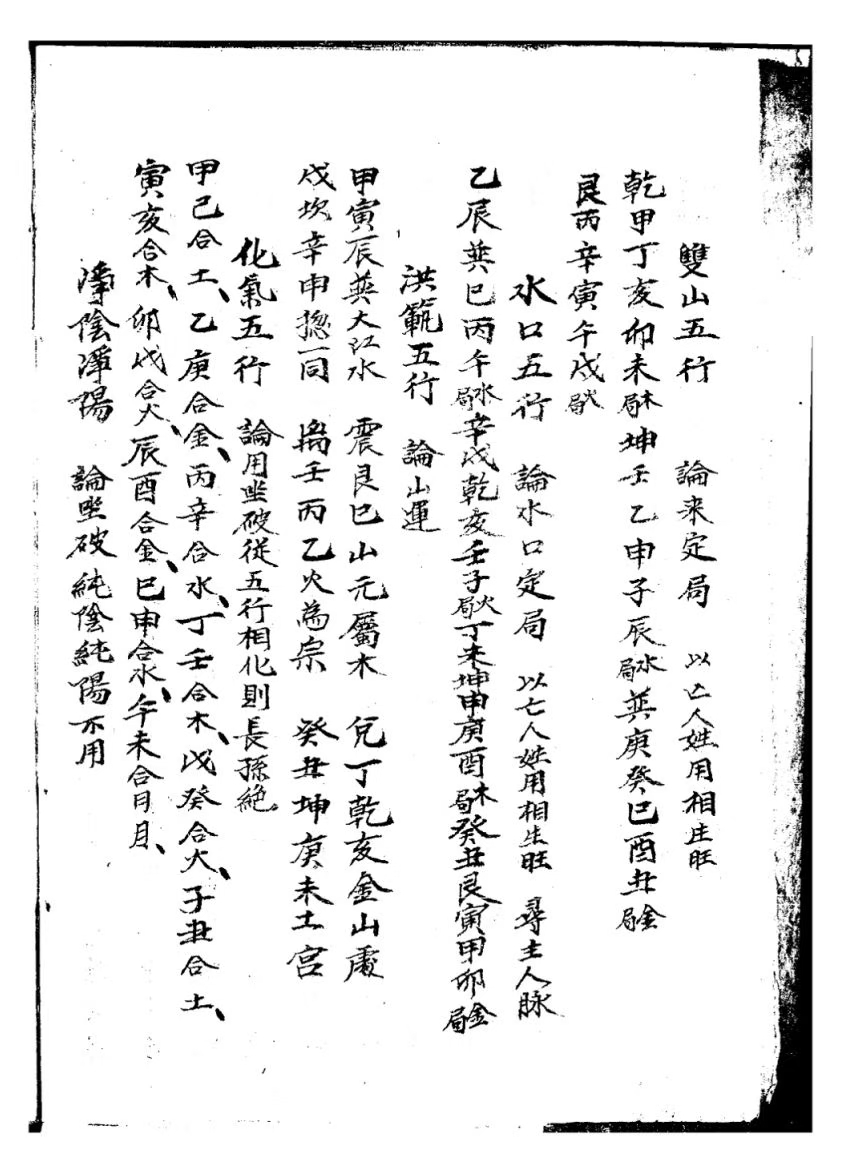 雙山五行 論来定局 以亡人姓用相生旺
乾甲丁亥卯未木局坤壬乙申子辰水局巽庚癸巳酉丑金局
艮丙辛寅午戌火局
水口五行 論水口定局 以亡人姓用相生旺 尋主人脉
乙辰巽巳丙午水局辛戌乾亥壬子火局丁未坤申庚酉木局癸丑艮寅甲卯金局
洪範五行 論山運
甲寅辰巽大江水 震艮巳山元屬木 兌丁乾亥金山處
戌坎辛申摠一同 离壬丙乙火為宗 癸丑坤庚未土宫
化氣五行 論用坐破從五行相化則長孫絶
甲己合土、乙庚合金、丙辛合水、丁壬合木、戊癸合火、子丑合土、
寅亥合木、卯戌合火、辰酉合金、巳申合水、午未合日月、
淨陰淨陽 論坐破純陰純陽不用